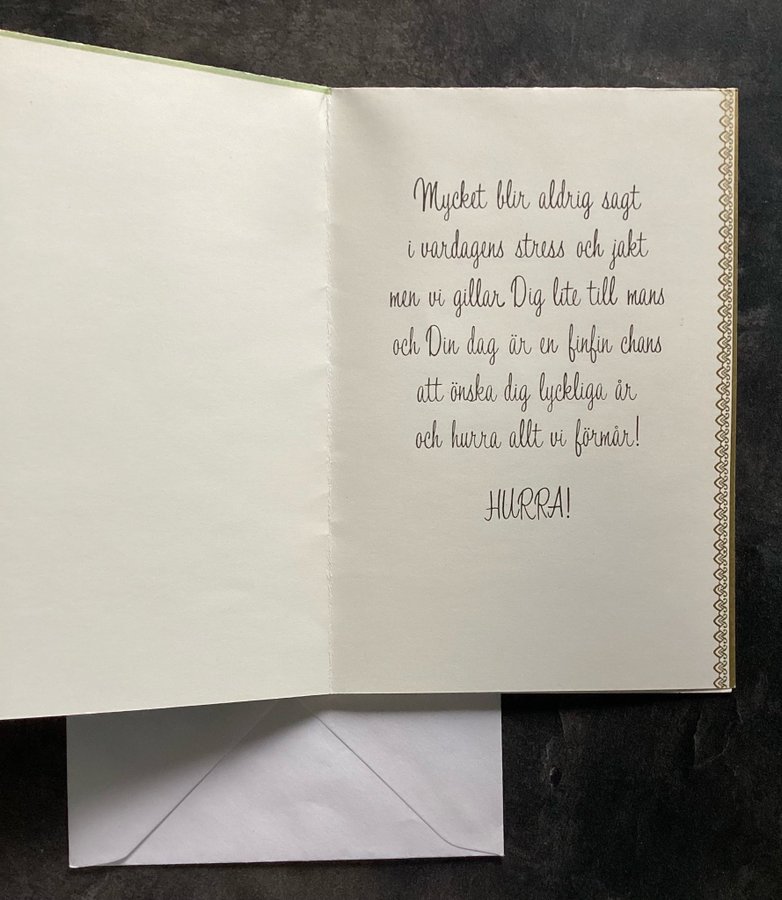 Mycket blir aldrig sagt
i vardagens stress och jakt
men vi gillar Dig lite till mans
och Din dag är en finfin chans
att önska dig lyckliga år
och hurra allt vi förmår!
HURRA!